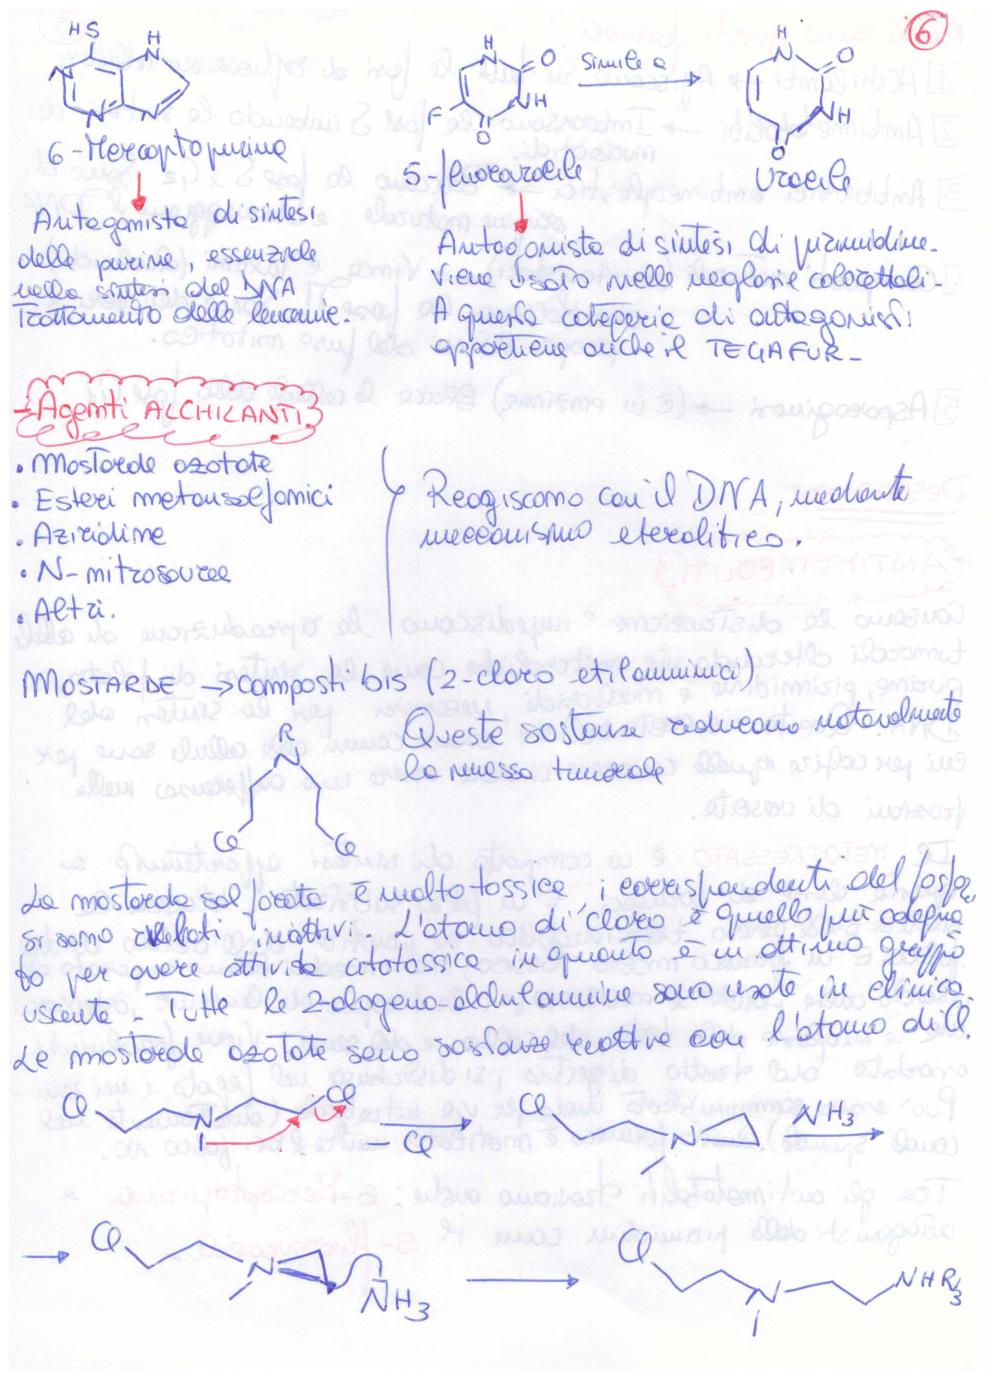 6
HS
H
N
N
N
N
6-Mercaptopurina
H
N
O
NH
F
O
5-fluorouracile
Simile a
H
N
O
NH
O
Uracile
Antagonista di sintesi
delle purine, essenziale
nella sintesi del DNA
Trattamento delle leucemie.
Antagonista di sintesi di pirimidine.
Viene usato nelle neoplasie colorettali.
A questa categoria di antagonisti
appartiene anche il TEGAFUR-
-Agenti ALCHILANTI
• Mostarde azotate
• Esteri metansolfonici
• Aziridine
• N-nitrosouree
• Altri.
Reagiscono con il DNA, mediante
meccanismo eterolitico.
MOSTARDE → composti bis (2-cloro etilamminici)
R
N
Cl
Cl
Queste sostanze riducono notevolmente
la massa tumorale
La mostarda solforata è molto tossica i corrispondenti del fosfo,
si sono rivelati inattivi. L'atomo di cloro è quello più adegua
to per avere attività citotossica, in quanto è un ottimo gruppo
uscente - Tutte le 2-alogeno-alchilammine sono usate in clinica
Le mostarde azotate sono sostanze reattive con l'atomo di Cl.
Cl
N
Cl
Cl
Cl
N
NH3
Cl
N
NH3
Cl
N
NHR3